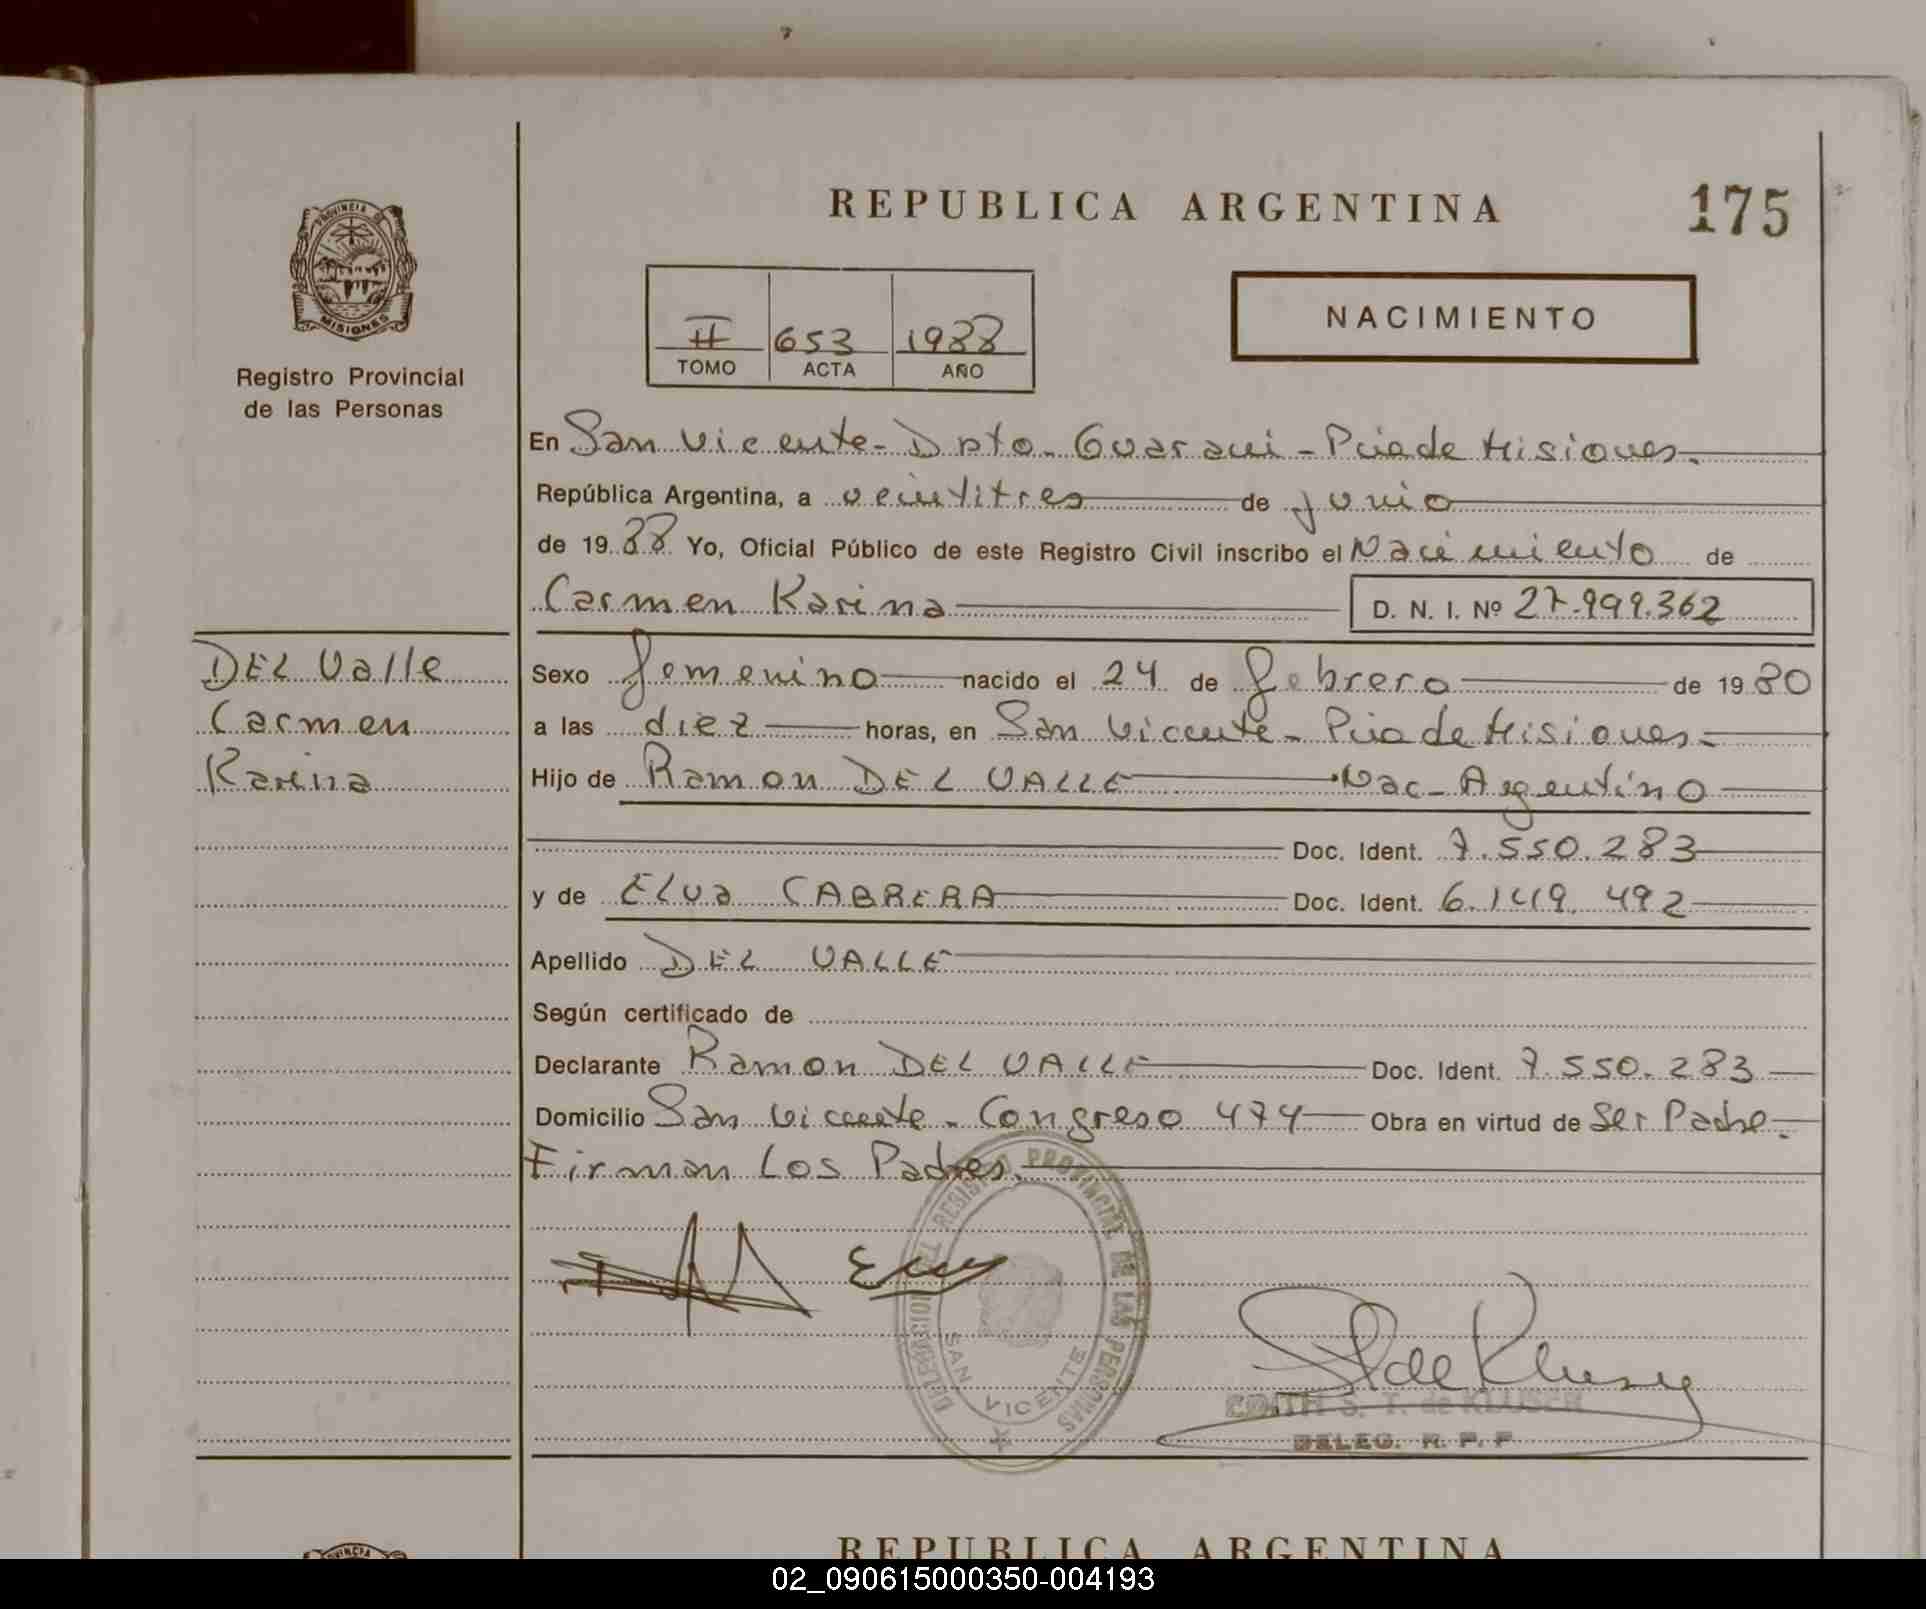 REPUBLICA ARGENTINA
175
PROVINCIA DE
MISIONES
Registro Provincial
de las Personas
II 653 1988
TOMO ACTA AÑO
NACIMIENTO
En San Vicente - Dpto. Guarani - Pcia de Misiones.
República Argentina, a veintitres de junio
de 1988 Yo, Oficial Público de este Registro Civil inscribo el Nacimiento de
Carmen Karina D. N. I. Nº 27.999.362
DEL Valle
Carmen
Karina
Sexo femenino nacido el 24 de febrero de 1980
a las diez horas, en San Vicente - Pcia de Misiones -
Hijo de Ramon DEL VALLE Nac - Argentino
Doc. Ident. 7.550.283
y de ELVa CABRERA Doc. Ident. 6.149.492
Apellido DEL VALLE
Según certificado de
Declarante Ramon DEL VALLE Doc. Ident. 7.550.283
Domicilio San Vicente - Congreso 474 Obra en virtud de Ser Padre.
Firman Los Padres.
DELEGACION REGISTRO PROVINCIAL DE LAS PERSONAS
SAN VICENTE
EDITH S. T. de KLUSER
DELEG. R. P. P
REPUBLICA ARGENTINA
02_090615000350-004193